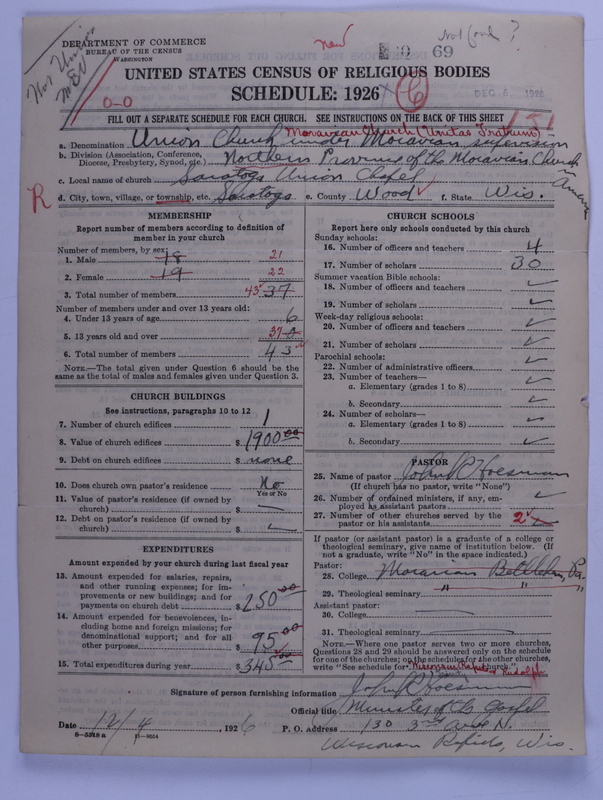 Not Cand ?
new
69
DEPARTMENT OF COMMERCE
BUREAU OF THE CENSUS
WASHINGTON
UNITED STATES CENSUS OF RELIGIOUS BODIES
SCHEDULE: 1926
0-0
DEC 6, 1926
FILL OUT A SEPARATE SCHEDULE FOR EACH CHURCH. SEE INSTRUCTIONS ON THE BACK OF THIS SHEET
151
Moravian Church (Unitas Fratrum)
a. Denomination Union Church under Moravian supervision
b. Division (Association, Conference, Diocese, Presbytery, Synod, etc.) Northern Province of the Moravian Church in America
c. Local name of church Saratoga Union Chapel
R
d. City, town, village, or township, etc. Saratoga e. County Wood f. State Wis.
MEMBERSHIP
Report number of members according to definition of
member in your church
Number of members, by sex:
1. Male 18 21
2. Female 19 22
3. Total number of members 43 37
Number of members under and over 13 years old:
4. Under 13 years of age 6
5. 13 years old and over 37 0
6. Total number of members 43
NOTE.—The total given under Question 6 should be the
same as the total of males and females given under Question 3.
CHURCH BUILDINGS
See instructions, paragraphs 10 to 12
7. Number of church edifices 1
8. Value of church edifices $ 1900.00
9. Debt on church edifices $ none
10. Does church own pastor's residence? No
Yes or No
11. Value of pastor's residence (if owned by
church) $ —
12. Debt on pastor's residence (if owned by
church) $
EXPENDITURES
Amount expended by your church during last fiscal year
13. Amount expended for salaries, repairs,
and other running expenses; for im-
provements or new buildings; and for
payments on church debt $ 250.00
14. Amount expended for benevolences, in-
cluding home and foreign missions; for
denominational support; and for all
other purposes $ 95.00
15. Total expenditures during year $ 345.00
CHURCH SCHOOLS
Report here only schools conducted by this church
Sunday schools:
16. Number of officers and teachers 4
17. Number of scholars 30
Summer vacation Bible schools:
18. Number of officers and teachers
19. Number of scholars
Week-day religious schools:
20. Number of officers and teachers
21. Number of scholars
Parochial schools:
22. Number of administrative officers
23. Number of teachers—
a. Elementary (grades 1 to 8)
b. Secondary
24. Number of scholars—
a. Elementary (grades 1 to 8)
b. Secondary
PASTOR
25. Name of pastor John R Hoesman
(If church has no pastor, write "None")
26. Number of ordained ministers, if any, em-
ployed as assistant pastors
27. Number of other churches served by the
pastor or his assistants 2
If pastor (or assistant pastor) is a graduate of a college or
theological seminary, give name of institution below. (If
not a graduate, write "No" in the space indicated.)
Pastor:
28. College Moravian Bethlehem Pa.
29. Theological seminary " " "
Assistant pastor:
30. College
31. Theological seminary
NOTE.—Where one pastor serves two or more churches,
Questions 28 and 29 should be answered only on the schedule
for one of the churches; on the schedules for the other churches,
write "See schedule for Wisconsin Rapids Rudolph church."
Signature of person furnishing information John R Hoesman
Official title Minister of the Gospel
Date 12/4 1926 P. O. Address 130 3rd Ave N.
8—5318 a
Wisconsin Rapids, Wis.